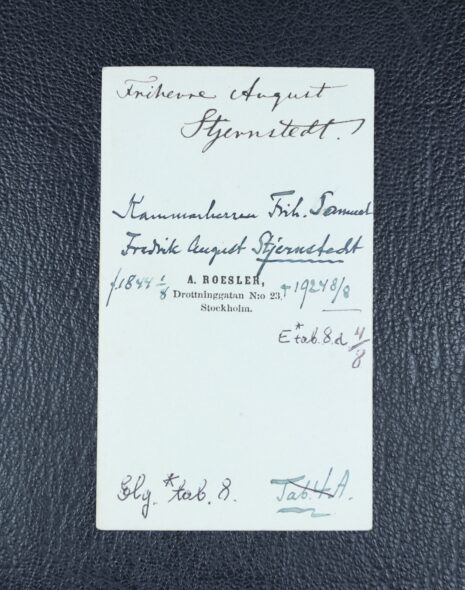 Friherre August
Stjernstedt.
Kammarherren Frih. Samuel
Fredrik August Stjernstedt
f 1844 1/8
A. ROESLER,
Drottninggatan N:o 23,
Stockholm.
† 1924 8/8
E* tab. 8. d 4/8
* tab. 8.
Tab. 4. A.